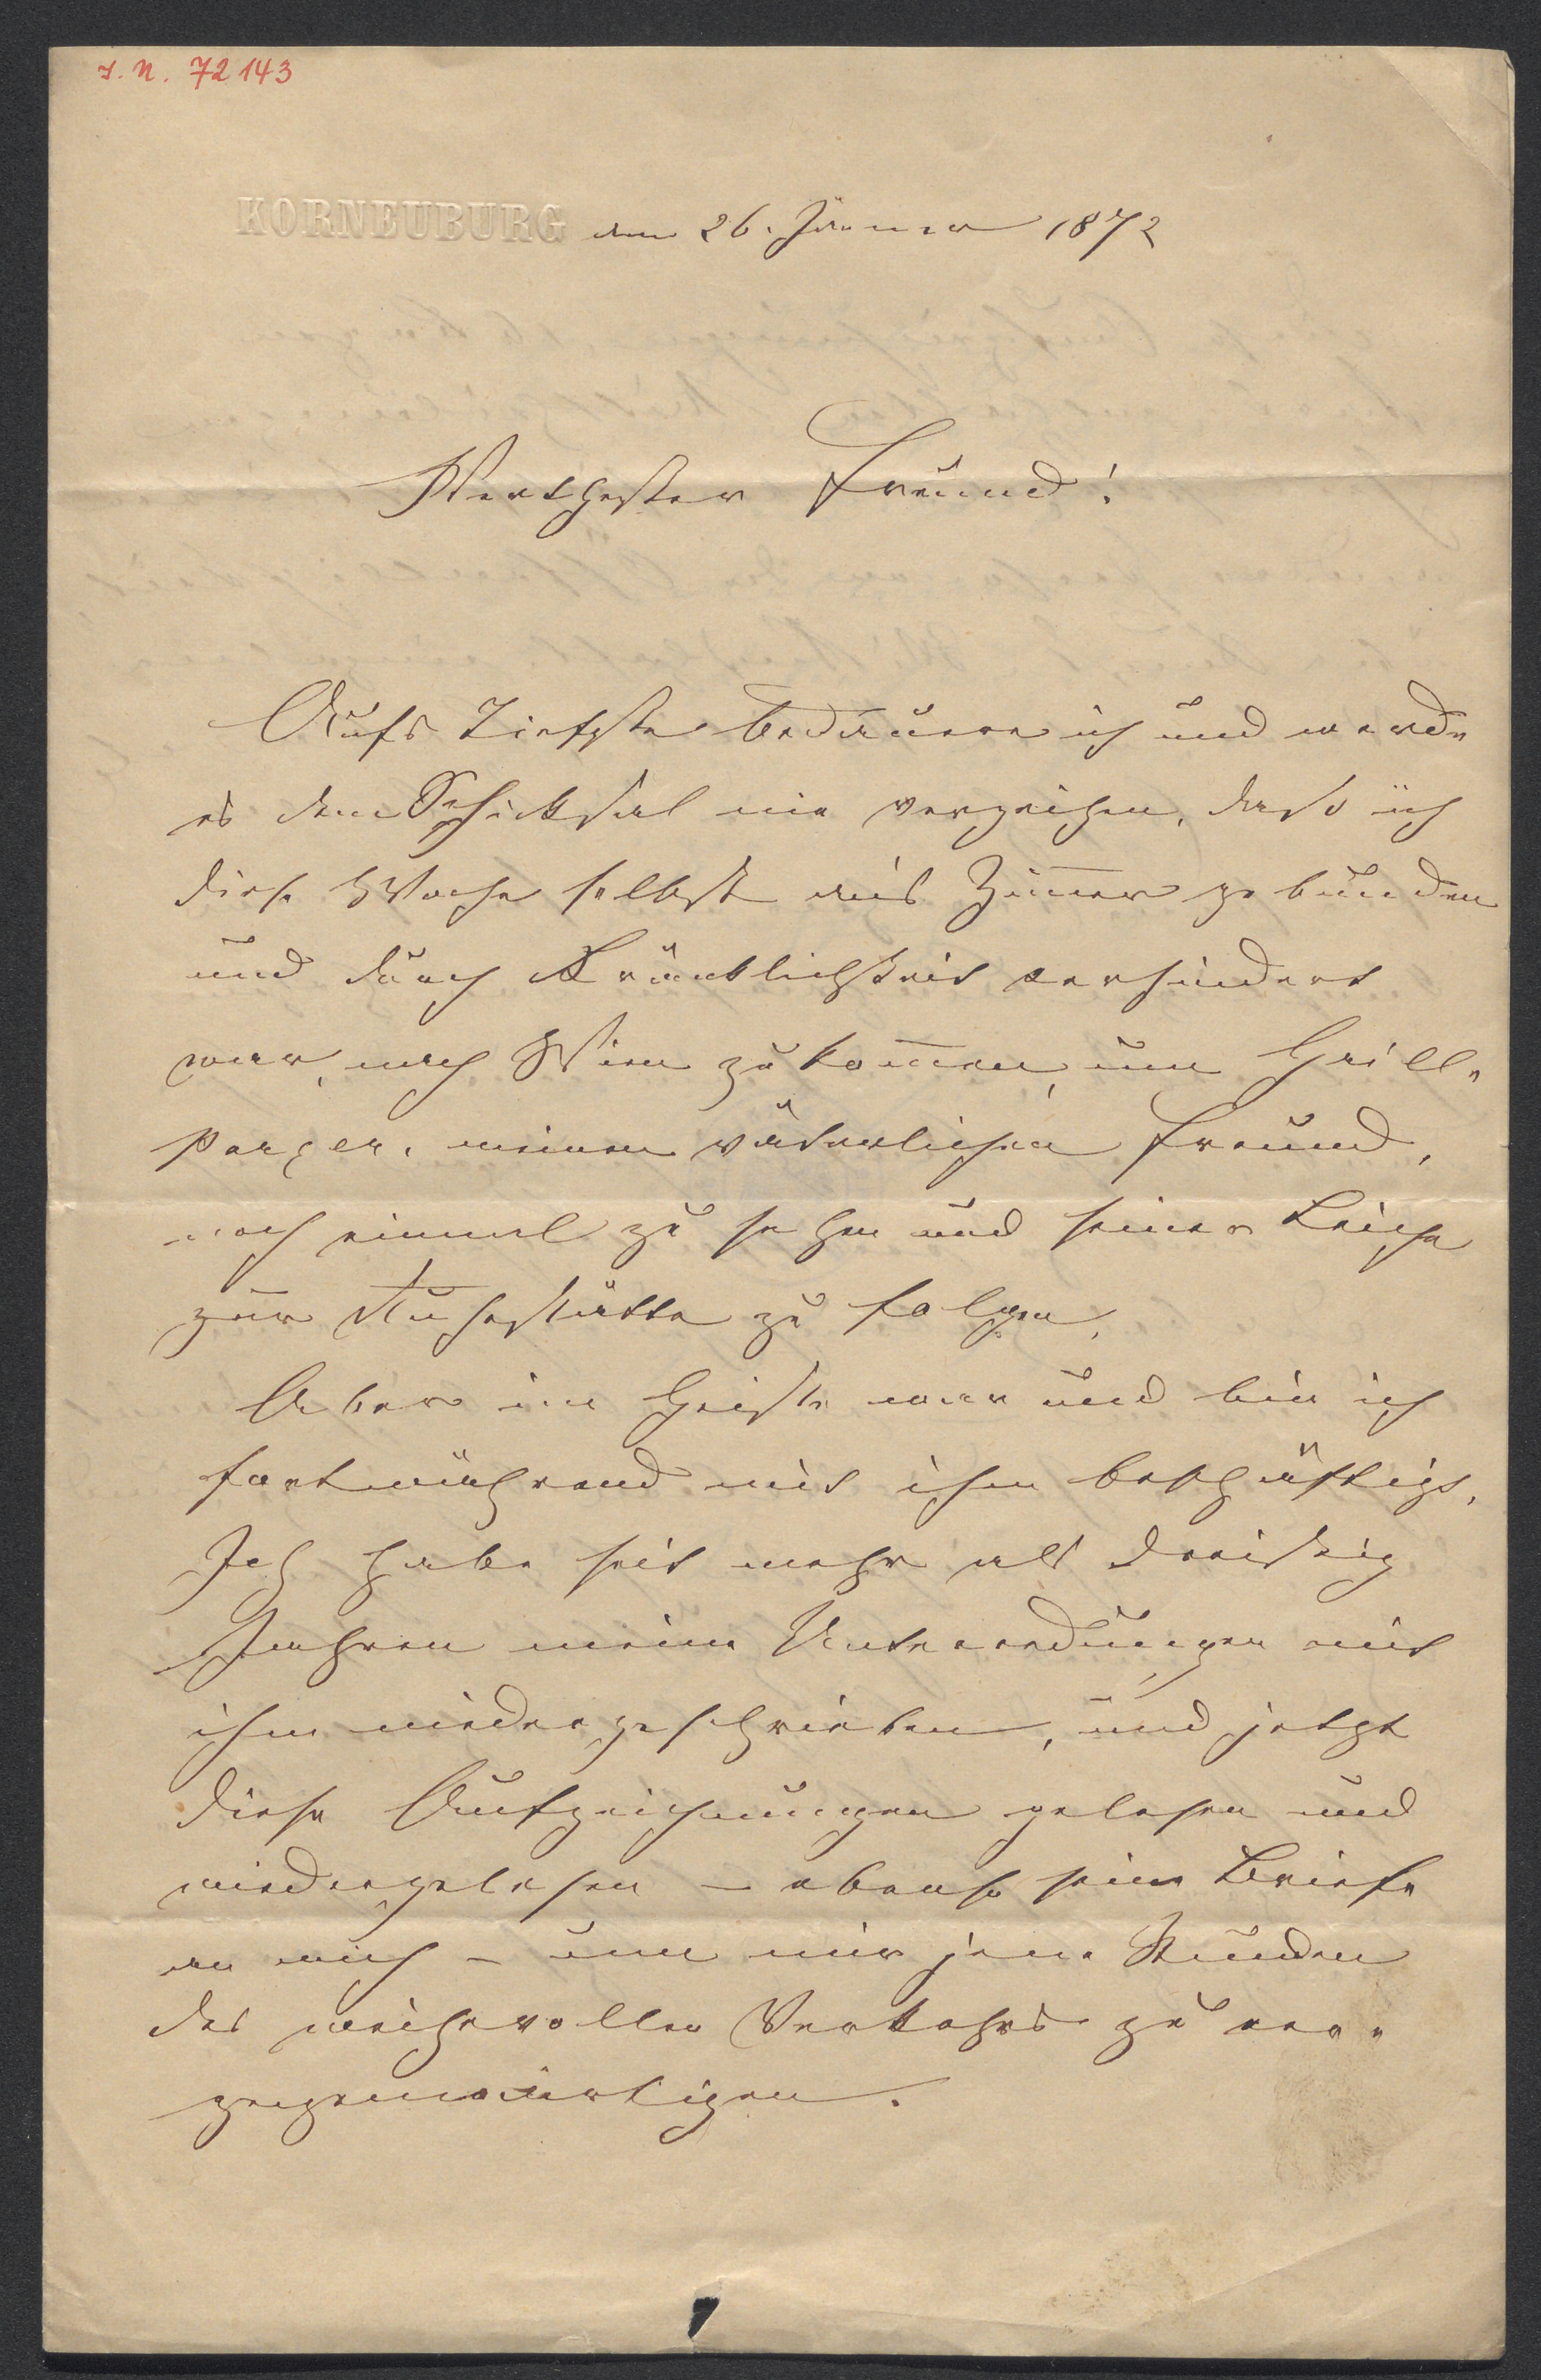 I. N. 72143
KORNEUBURG den 26. Jänner 1872
Werthester Freund!
Aufs Tiefste bedauere ich und werde
es dem Schicksal nie verzeihen, daß ich
diese Woche selbst ans Zimer gebunden
und durch Kränklichkeit verhindert
war, nach Wien zu komen, um Grill-
parzer, meinen väterlichen Freund,
noch einmal zu sehen und seiner Leiche
zur Ruhestätte zu folgen.
Aber im Geiste war und bin ich
fortwährend mit ihm beschäftigt.
Ich habe seit mehr als dreißig
Jahren meine Unterredungen mit
ihm niedergeschrieben, und jetzt
diese Aufzeichnungen gelesen und
wiedergelesen – ebenso seine Briefe
an mich – um mir jene Stunden
des weihevollen Verkehrs zu ver-
gegenwärtigen.